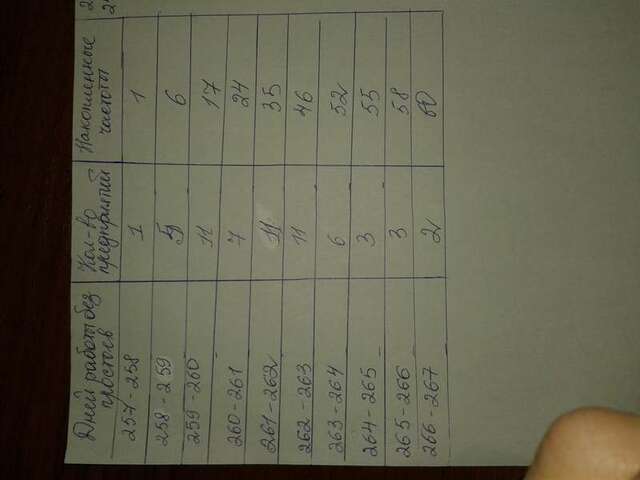 Дней работы без простоев Кол-во предприятий Накопленные частоты
257-258 1 1
258-259 5 6
259-260 11 17
260-261 7 24
261-262 11 35
262-263 11 46
263-264 6 52
264-265 3 55
265-266 3 58
266-267 2 60